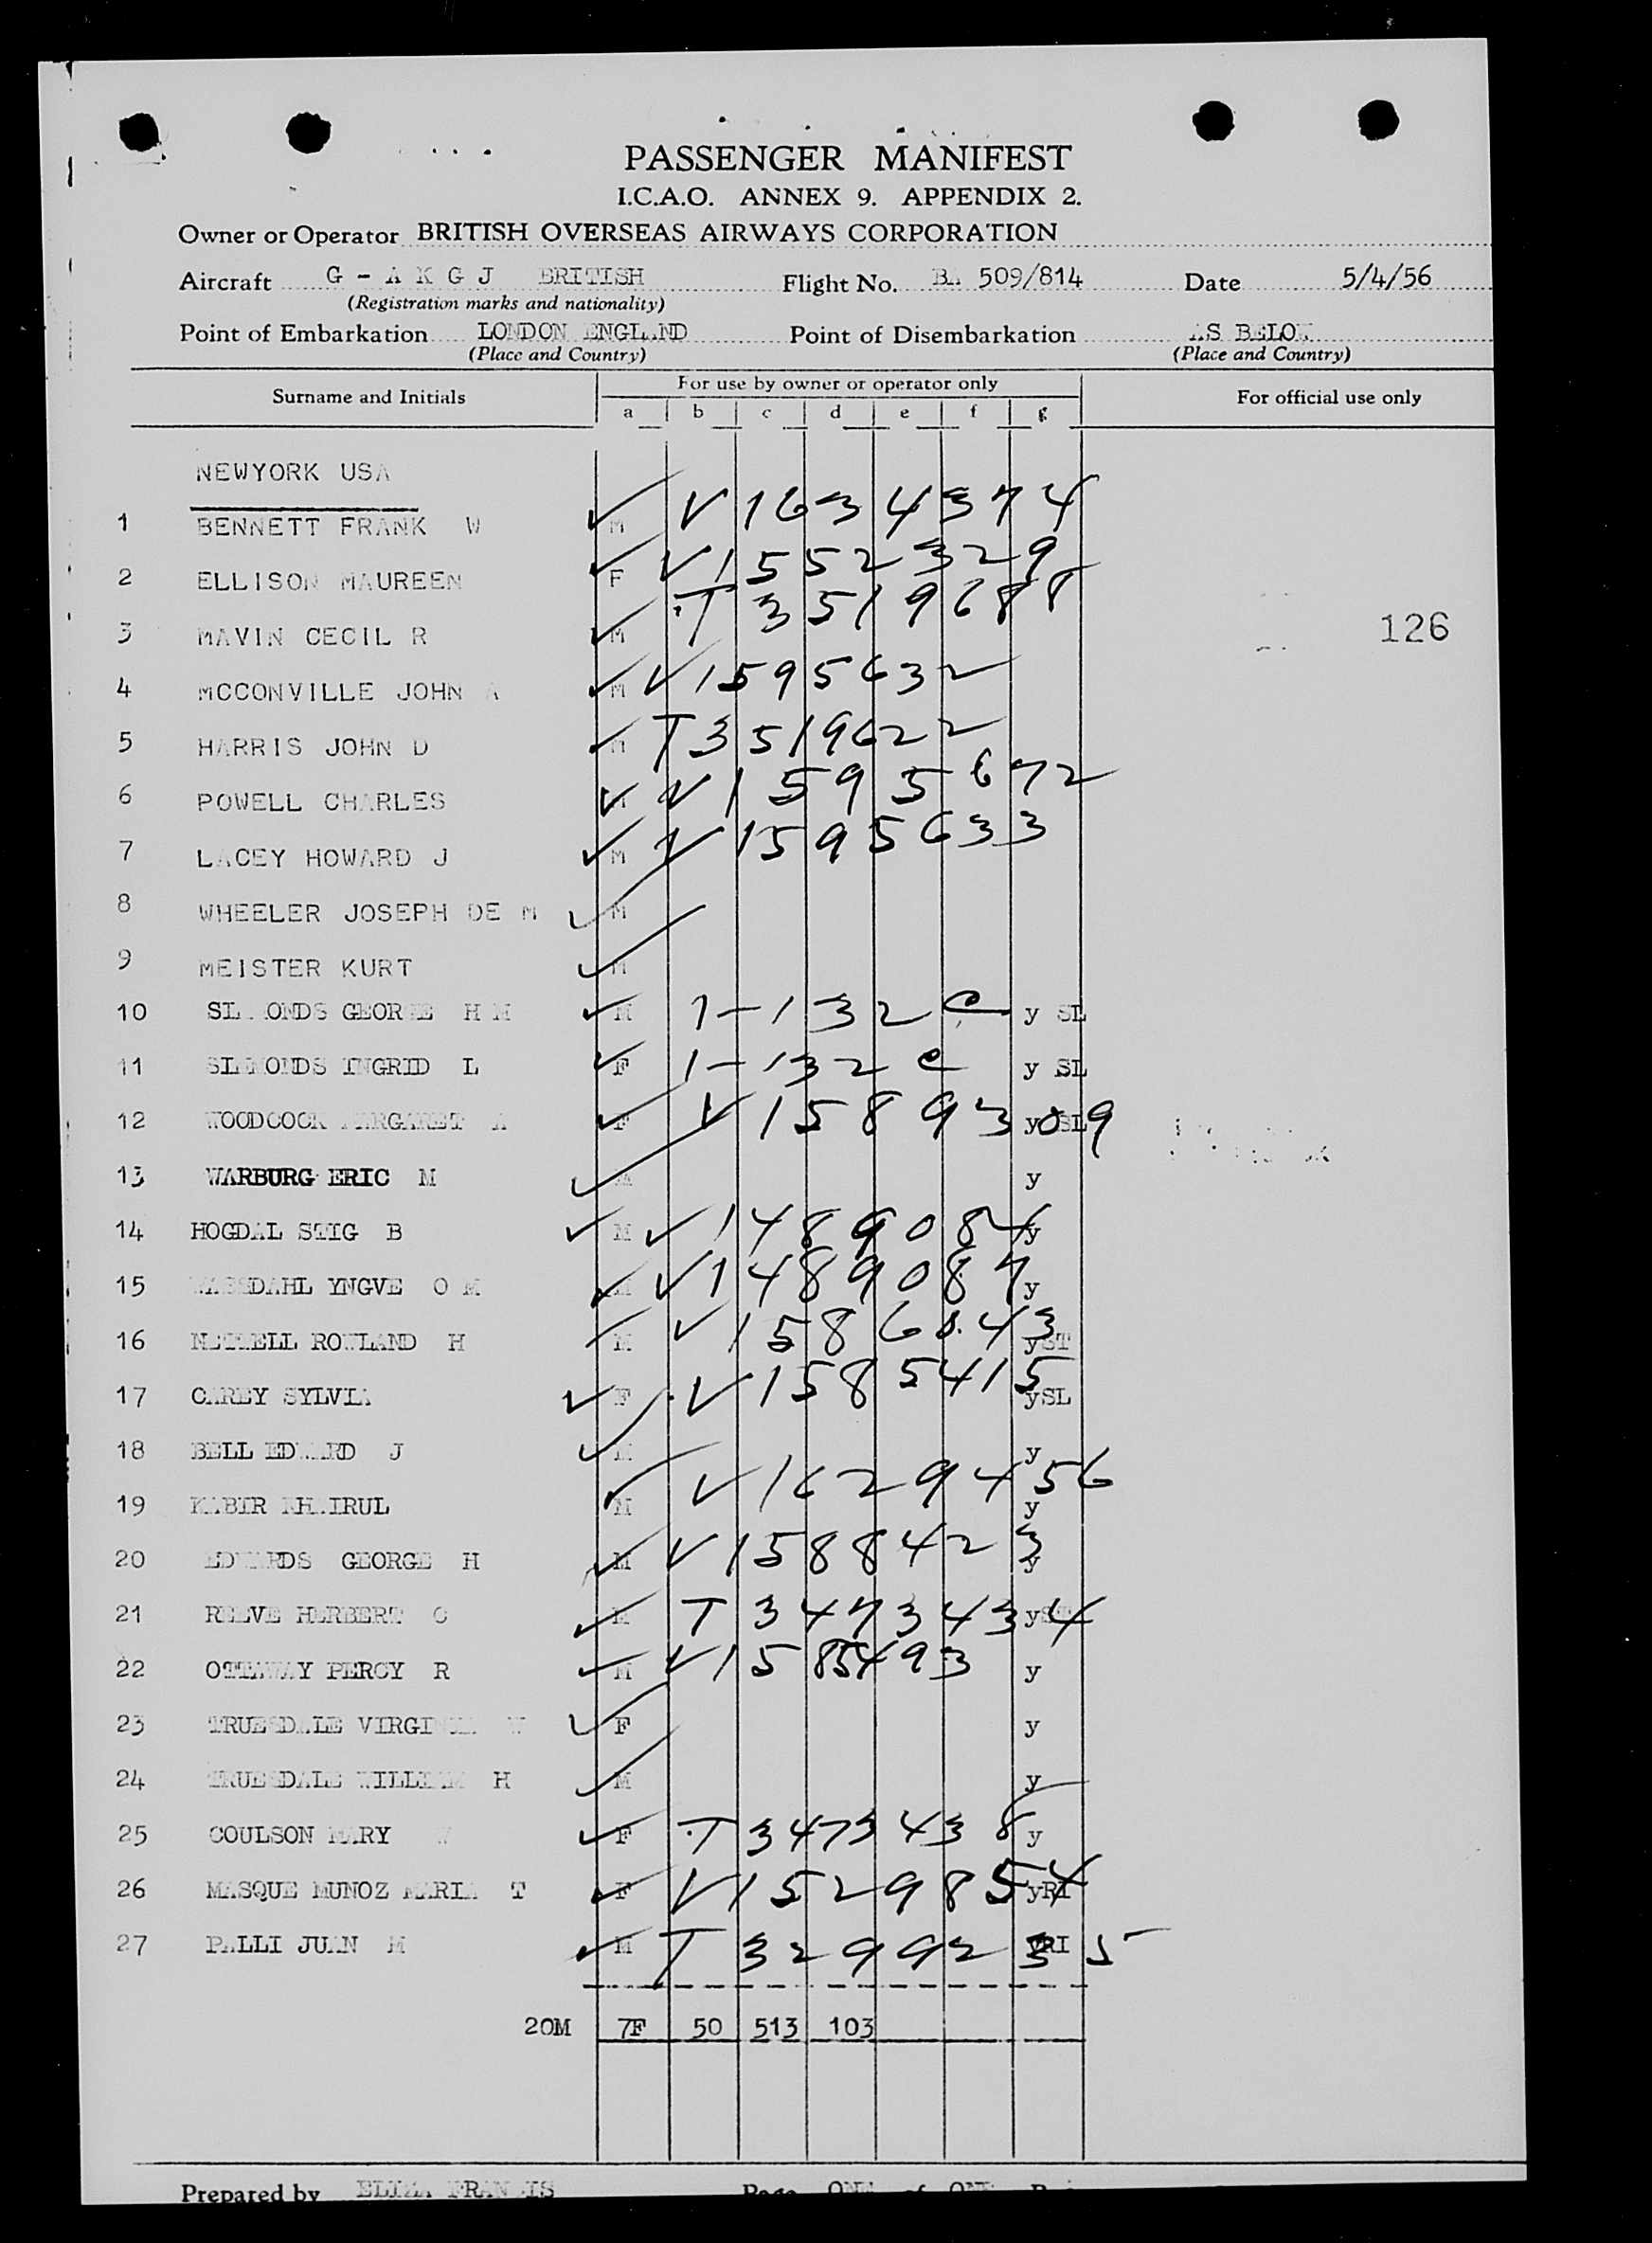 PASSENGER MANIFEST
I.C.A.O. ANNEX 9. APPENDIX 2.
Owner or Operator BRITISH OVERSEAS AIRWAYS CORPORATION
Aircraft G - A K G J BRITISH Flight No. BA 509/814 Date 5/4/56
(Registration marks and nationality)
Point of Embarkation LONDON ENGLAND Point of Disembarkation AS BELOW
(Place and Country) (Place and Country)
Surname and Initials For use by owner or operator only For official use only
a b c d e f g
NEWYORK USA
1 BENNETT FRANK W M V 1634374
2 ELLISON MAUREEN F V 1552329
3 MAVIN CECIL R M T 3519688
126
4 MCCONVILLE JOHN A M V 1595632
5 HARRIS JOHN D M T 3519622
6 POWELL CHARLES M V 1595672
7 LACEY HOWARD J M V 1595633
8 WHEELER JOSEPH DE M M
9 MEISTER KURT M
10 SIMMONDS GEORGE H M M 1-132 e y SL
11 SIMMONDS INGRID L F 1-132 e y SL
12 WOODCOCK MARGARET A F V 1589309 y SL
13 WARBURG ERIC M M y
14 HOGDAL STIG B M V 1489084 y
15 YNGVE O M M V 1489087 y
16 ROWLAND H M V 1586043 y ST
17 CAREY SYLVIA F V 1585415 y SL
18 BELL EDWARD J M y
19 KABIR KHAIRUL M V 1629456 y
20 EDWARDS GEORGE H M V 1588423 y
21 REEVE HERBERT C M T 3473434 y ST
22 OTTAWAY PERCY R M V 1585493 y
23 TRUESDALE VIRGINIA W F y
24 TRUESDALE WILLIAM H M y
25 COULSON MARY W F T 3473438 y
26 MASQUE MUNOZ MARIA T F V 1529854 y RI
27 PALLI JUAN M M T 3299235 y RI
20M 7F 50 513 103
Prepared by FRANCIS Page ONE of ONE